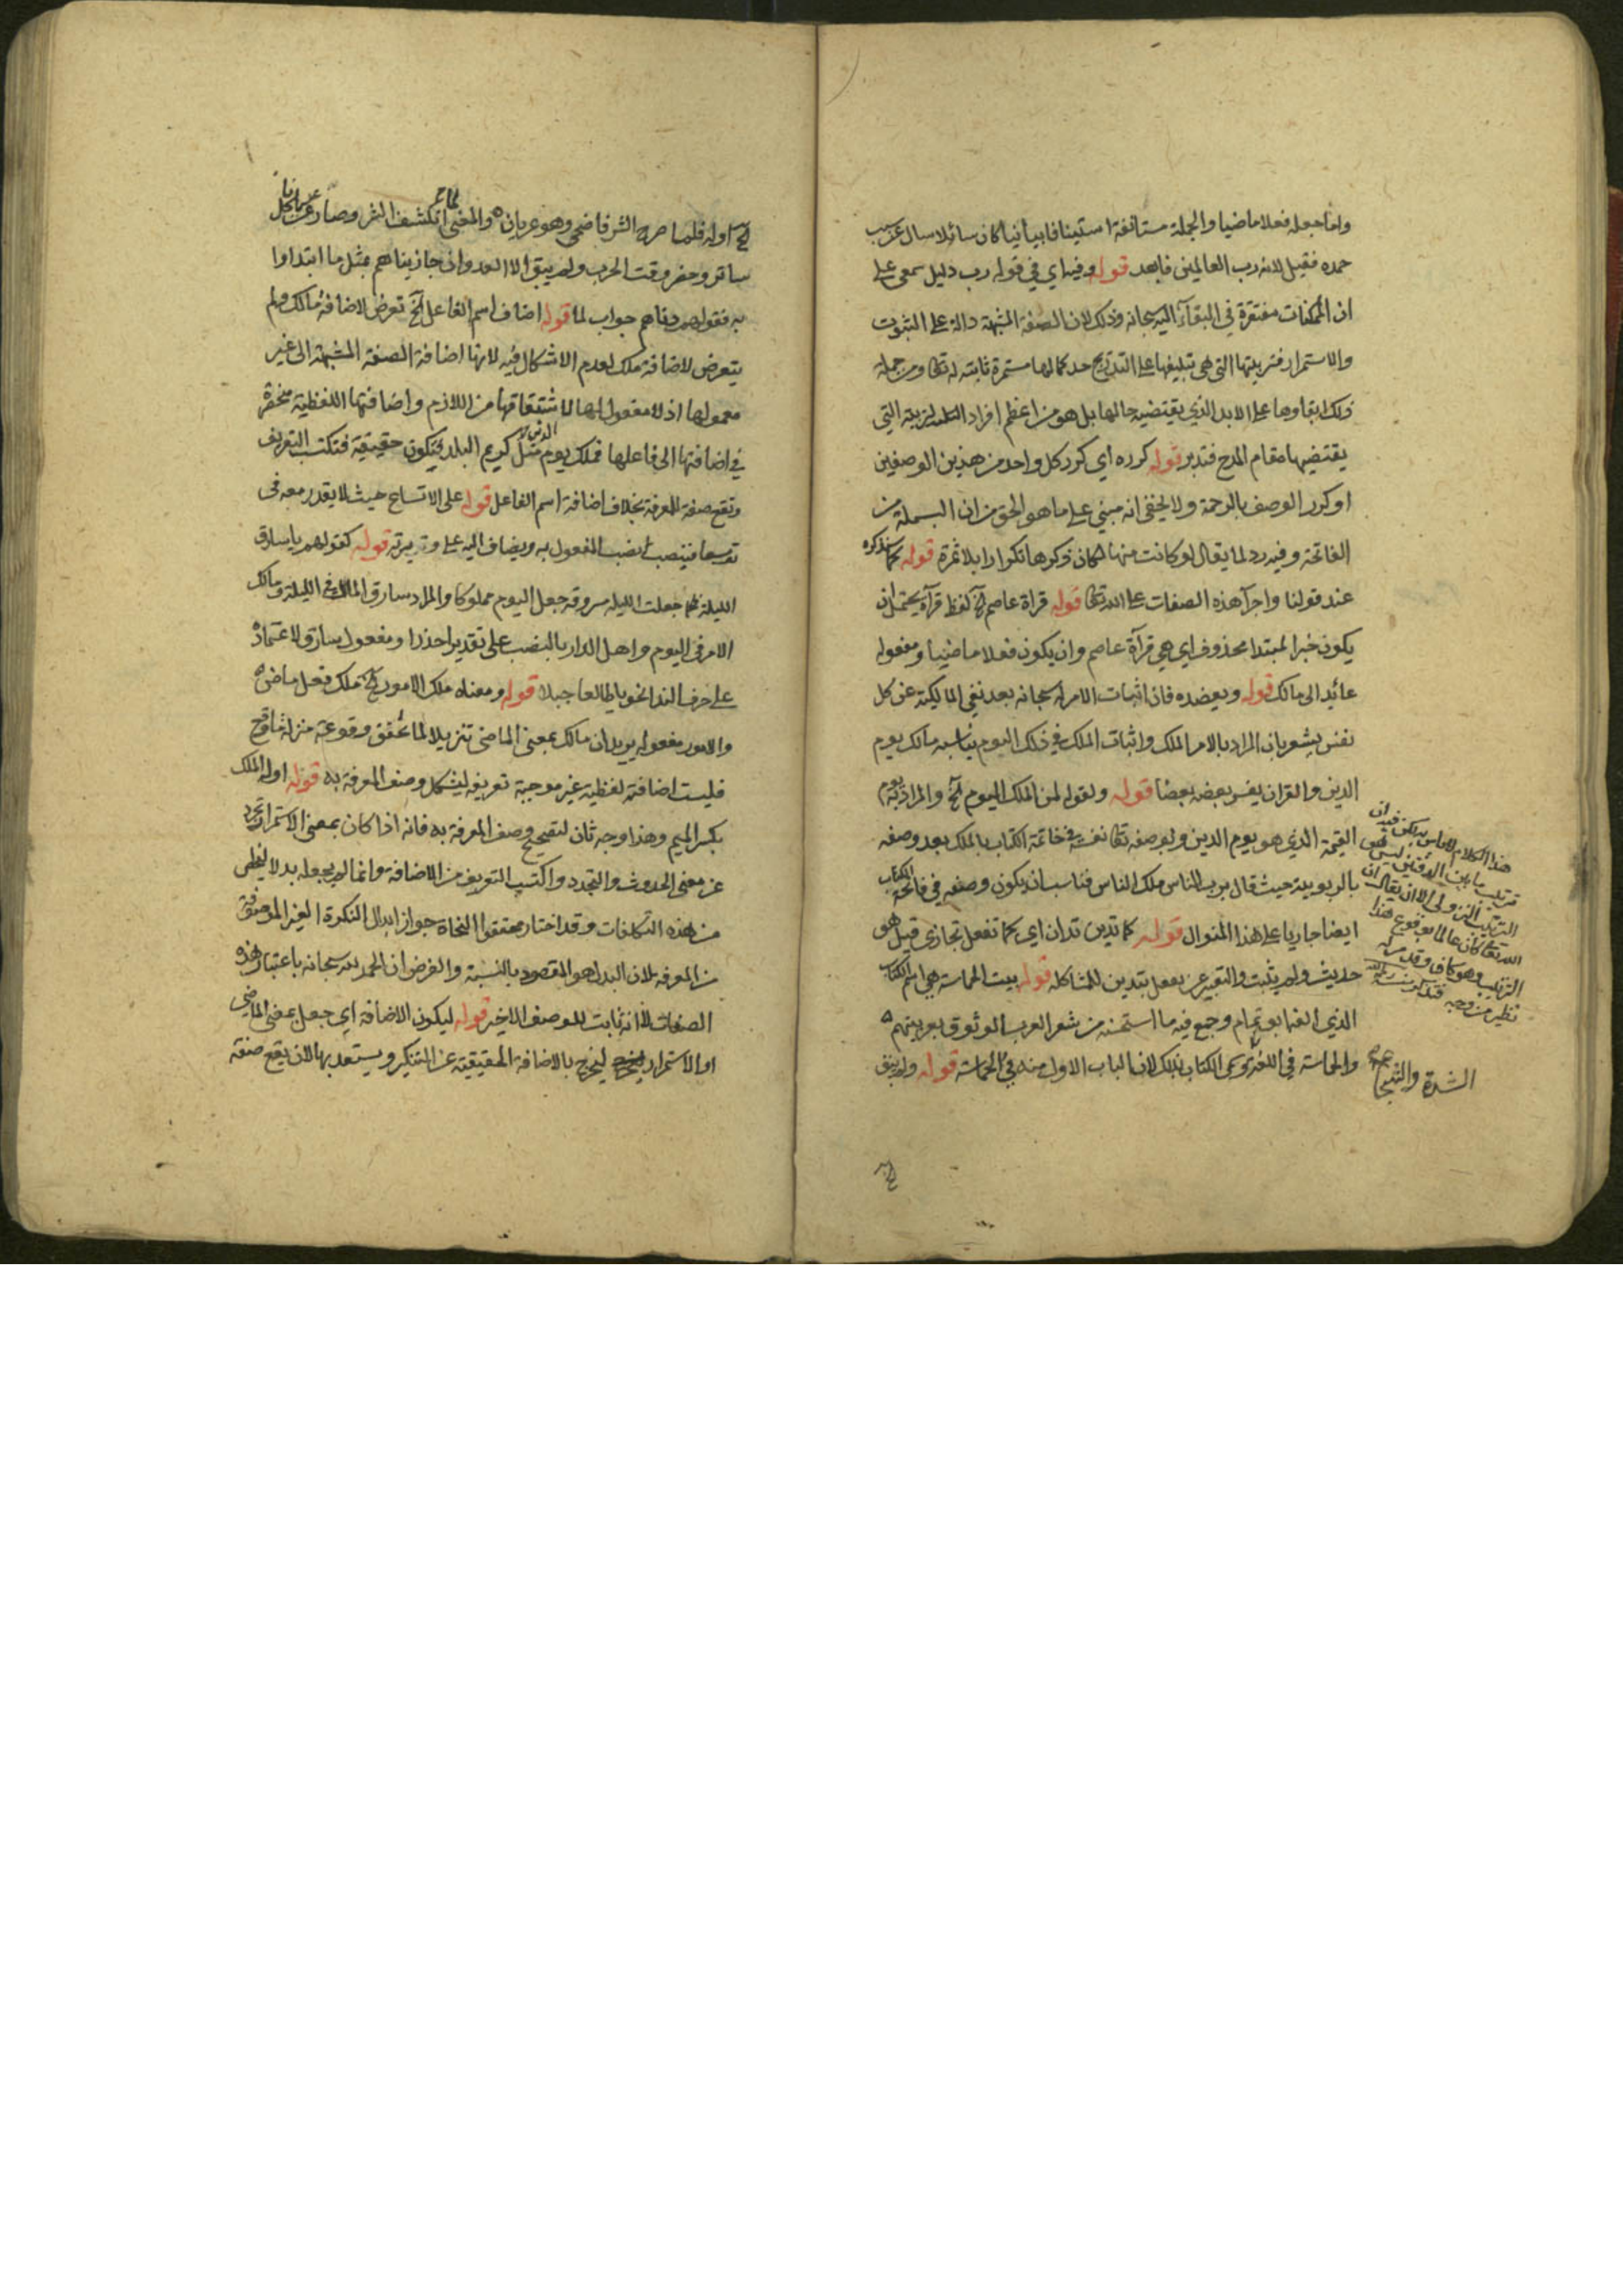 واما جعله فعلا ماضيا والجملة مستانفة استينافا بيانيا كان سائلا سال عن سبب
حمده فقيل لانه رب العالمين فابعد قوله وفيه اي في قوله رب دليل سمعي على
ان الممكنات مفتقرة في البقاء اليه سبحانه وذلك لان الصفة المشبهة دالة على الثبوت
والاستمرار فتربيتها التي هي تبليغها على التدريج حد كمالها مستمرة ثابتة له تعالى ومن جملة
ذلك ابقاوها على الابد الذي يقتضيه حالها بل هو من اعظم افراد التربية التي
يقتضيها مقام المدح فتدبر قوله كرره اي كرر كل واحد من هذين الوصفين
او كرر الوصف بالرحمة ولا يخفى انه مبني على ما هو الحق من ان البسملة من
الفاتحة وفيه رد لما يقال لو كانت منها لكان ذكرها تكرارا بلا ثمرة قوله كما سنذكره
عند قولنا واجراء هذه الصفات على الله تعالى قوله قراة عاصم الخ لفظ قرآة يحتمل ان
يكون خبرا لمبتدا محذوف اي هي قرآة عاصم وان يكون فعلا ماضيا ومفعوله
عائد الى مالك قوله ويعضده فان اثبات الامر له سبحانه بعد نفي المالكية عن كل
نفس يشعر بان المراد بالامر الملك واثبات الملك في ذلك اليوم يناسبه مالك يوم
الدين والقران يفسر بعضه بعضا قوله ولقوله لمن الملك اليوم الخ والمراد به يوم
القيمة الذي هو يوم الدين ولوصفه تعالى نفسه في خاتمة الكتاب بالملك بعد وصفه
بالربوبية حيث قال برب الناس ملك الناس فناسب ان يكون وصفه في فاتحة الكتاب
ايضا جاريا على هذا المنوال قوله كما تدين تدان اي كما تفعل تجازى قيل هو
حديث ولم يثبت والتعبير عن يفعل بتدين للمشاكلة قوله بيت الحماسة هي اسم الكتاب
الذي الفه ابو تمام وجمع فيه ما استحسنه من شعر العرب الموثوق بعربيتهم
والحماسة في اللغة سمي الكتاب بذلك لان الباب الاول منه في الحماسة قوله ولم يبق
هذا الكلام لا باس به لكن فيه ان
ترتيب ما بين الدفتين ليس هو
الترتيب النزولي الا ان يقال ان
الله تعالى كان عالما بوقوع هذا
الترتيب وهو كاف وقد مر له
نظير من وجه فتذكر منه
الشدة والشجاعة
الخ اوله فلما صرح الشر فاضحى وهو عريان والمعنى لما انكشف الشر وصار عريانا عن كل
ساتر وحضر وقت الحرب ولم يبق الا العدوان جازيناهم بمثل ما ابتداوا
به فقوله دناهم جواب لما قوله اضاف اسم الفاعل الخ تعرض لاضافة مالك ولم
يتعرض لاضافة ملك لعدم الاشكال فيه لانها اضافة الصفة المشبهة الى غير
معمولها اذ لا مفعول لها لاشتقاقها من اللازم واضافتها اللفظية منحصرة
في اضافتها الى فاعلها فملك يوم الدين مثل كريم البلد فتكون حقيقية فتكتسب التعريف
وتقع صفة للمعرفة بخلاف اضافة اسم الفاعل قوله على الاتساع حيث لا يقدر معه في
توسعا فينصب نصب المفعول به ويضاف اليه على وتيرته قوله كقولهم يا سارق
الليلة جعلت الليلة مسروقة جعل اليوم مملوكا والمراد سارق المال في الليلة ومالك
الامر في اليوم واهل الدار بالنصب على تقدير احذر او مفعول سارق لاعتماده
على حرف الندا نحو يا طالعا جبلا قوله ومعناه ملك الامور الخ ملك فعل ماضي
والامور مفعوله يريد ان مالك بمعنى الماضي تنزيلا لما تحقق وقوعه منزلة ما وقع
فليست اضافته لفظية غير موجبة تعريفه ليشكل وصف المعرفة به قوله او له الملك
بكسر الميم وهذا وجه ثان لتصحيح وصف المعرفة به فانه اذا كان بمعنى الاستمرار تجرد
عن معنى الحدوث والتجدد واكتسب التعريف من الاضافة وانما لم يجعله بدلا ليخلص
من هذه التكلفات وقد اختار محققوا النحاة جواز ابدال النكرة الغير الموصوفة
من المعرفة لان البدل هو المقصود بالنسبة والغرض ان الحمد لله سبحانه باعتبار هذه
الصفات لا انه ثابت للوصف الاخير قوله ليكون الاضافة اي جعل بمعنى الماضي
او الاستمرار ليخرج بالاضافة الحقيقية عن التنكير ويستعد بها لان يقع صفة